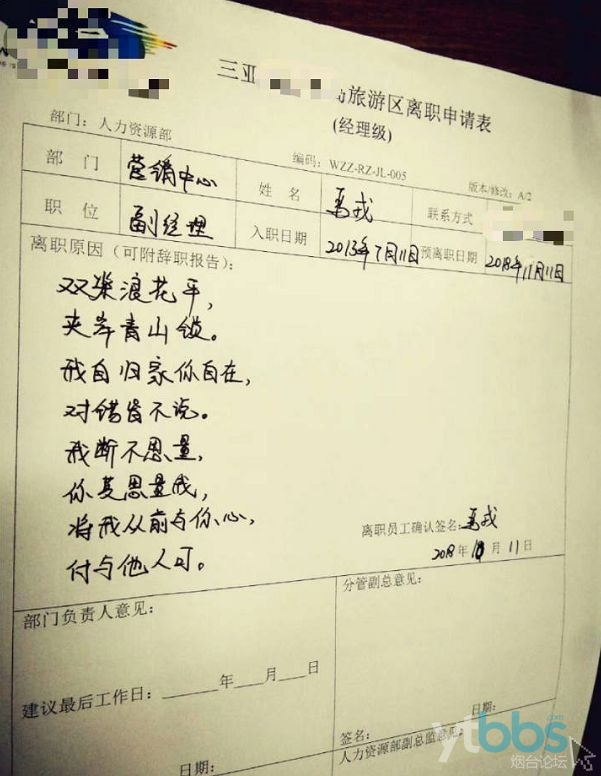 三亚 岛旅游区离职申请表
(经理级)
部门：人力资源部 编码：WZZ-RZ-JL-005 版本/修改：A/2
部 门 营销中心 姓 名 联系方式
职 位 副经理 入职日期 2013年7月11日 预离职日期 2018年11月11日
离职原因（可附辞职报告）：
双桨浪花平，
夹岸青山锁。
我自归家你自在，
对错皆不说。
我断不思量，
你莫思量我，
将我从前与你心，
付与他人可。
离职员工确认签名：
2018年10月11日
部门负责人意见：
分管副总意见：
建议最后工作日：____年____月____日
签名：
日期：
人力资源部副总监意见：
日期：
ytbbs.com
烟台论坛